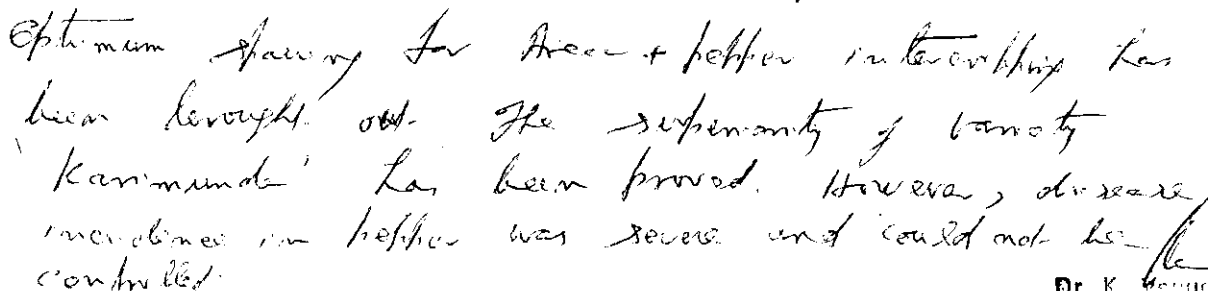 Optimum spacing for Areca + pepper intercropping has
been brought out. The superiority of variety
'Karimunda' has been proved. However, disease
incidence in pepper was severe and could not be
controlled.
Dr. K.